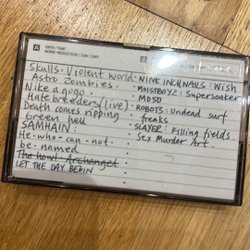 A DATE/TIME
NOISE REDUCTION □ON □OFF
Skulls · Violent world · NINE INCH NAILS: Wish
Astro Zombies · MOISTBOYZ: Supersoaker
Nike a gogo · MD50
Hatebreeders (live) · ROBOTS: Undead surf
Death comes ripping freaks
Green hell · SLAYER: Killing fields
SAMHAIN: · Sex Murder Art.
He-who-can-not-
be-named
The howl · Archangel
LET THE DAY BEGIN